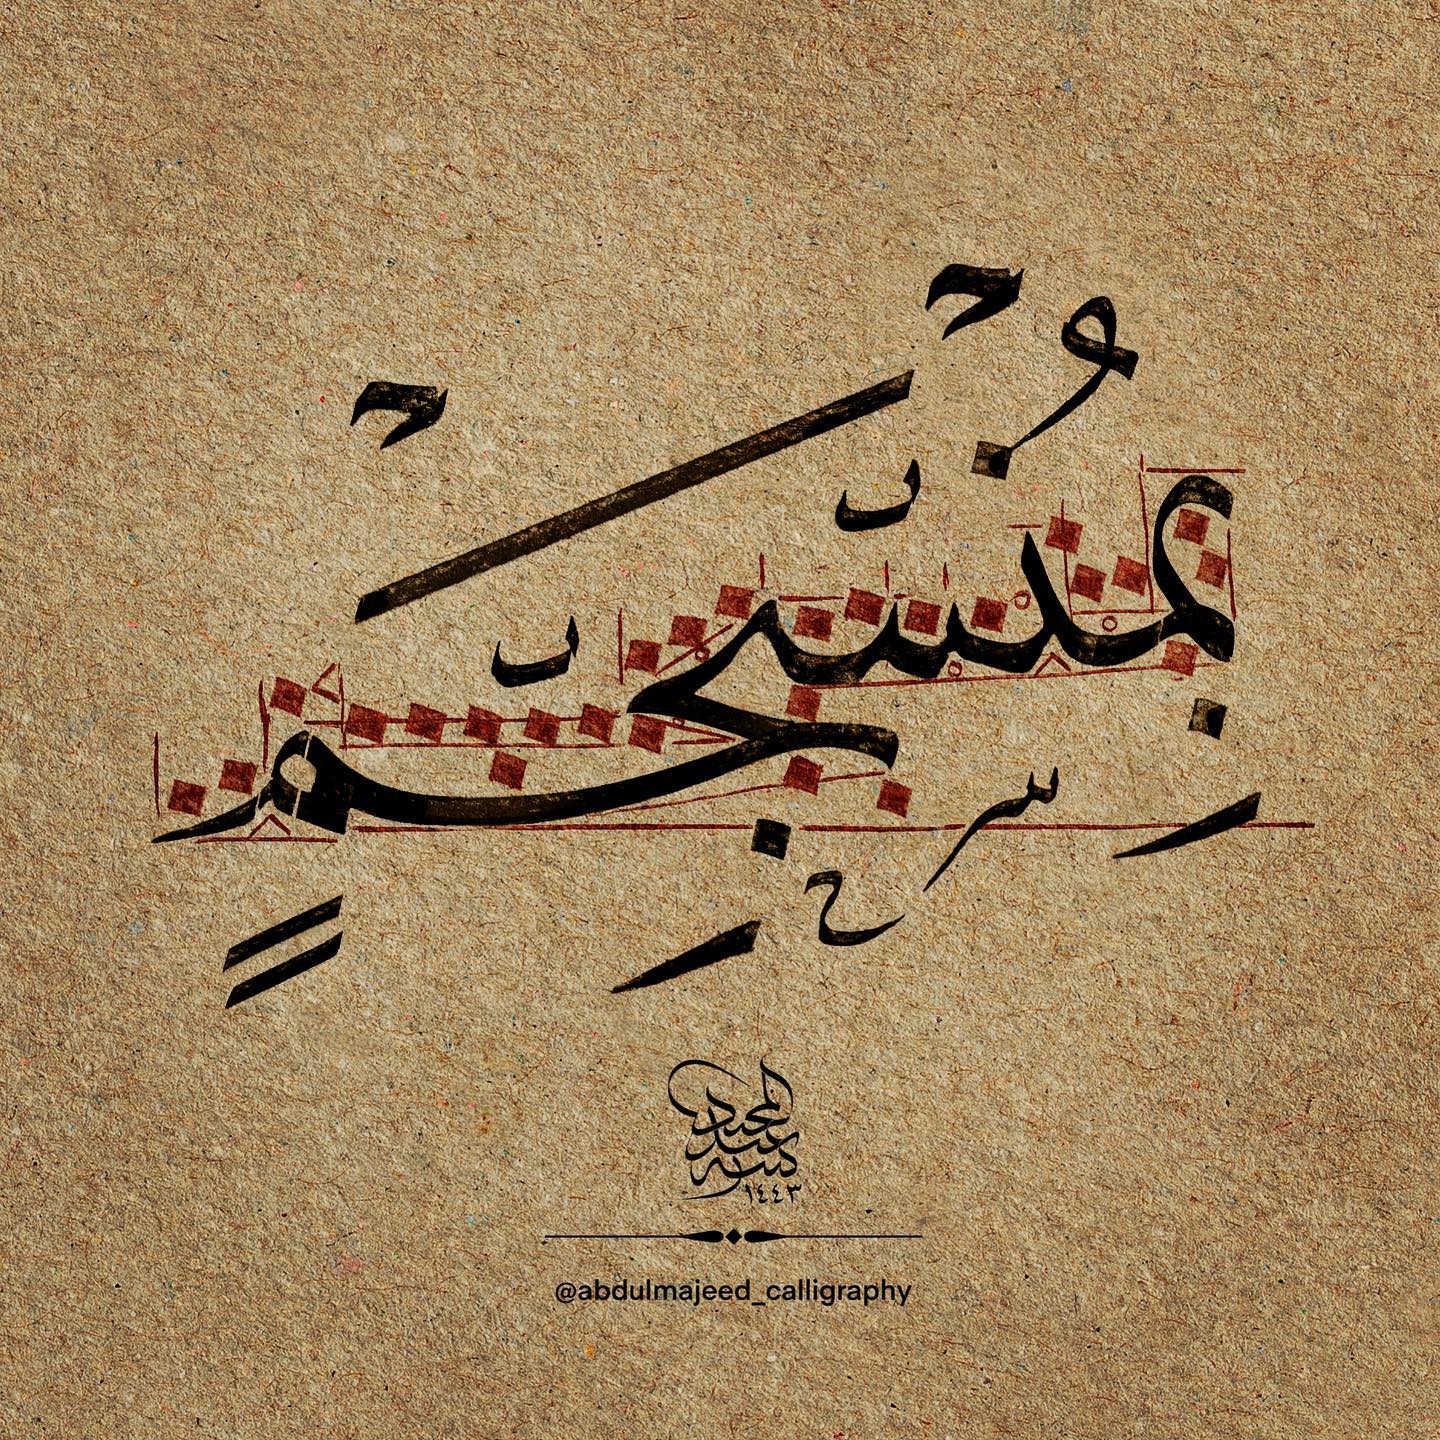 بِمُنسَجِمٍ
كتبه عبد المجيد
١٤٤٣
@abdulmajeed_calligraphy